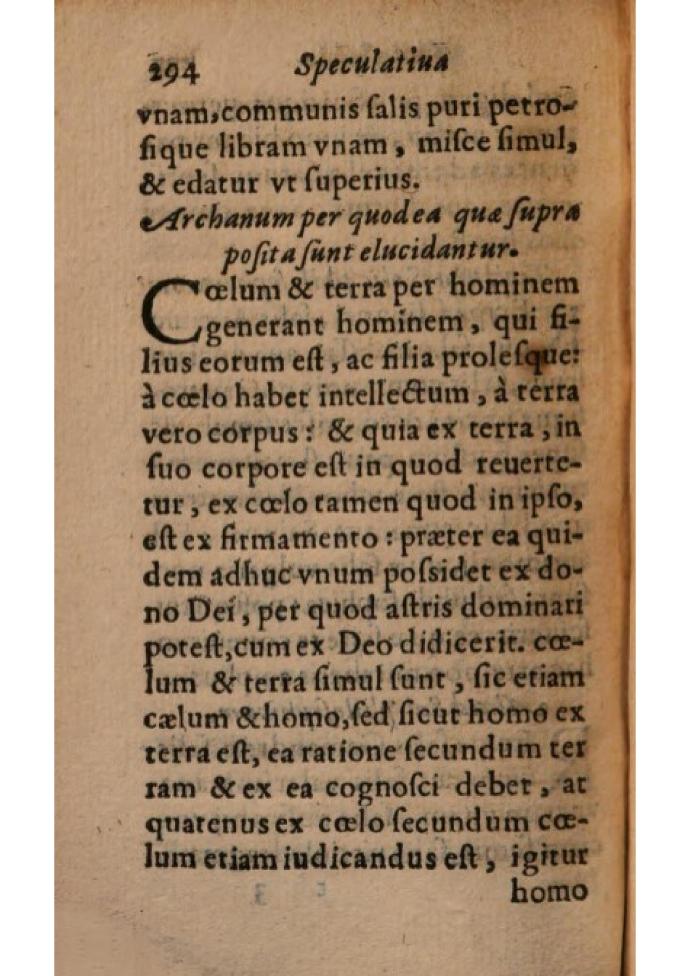 294 Speculatiua
vnam, communis ſalis puri petro-
ſique libram vnam, miſce ſimul,
& edatur vt ſuperius.
Archanum per quod ea quæ ſupra
poſita ſunt elucidantur.
Cœlum & terra per hominem
generant hominem, qui fi-
lius eorum eſt, ac filia proleſque:
à cœlo habet intellectum, à terra
vero corpus: & quia ex terra, in
ſuo corpore eſt in quod reuerte-
tur, ex cœlo tamen quod in ipſo,
eſt ex firmamento: præter ea qui-
dem adhuc vnum poſsidet ex do-
no Dei, per quod aſtris dominari
poteſt, cum ex Deo didicerit. cœ-
lum & terra ſimul ſunt, ſic etiam
cælum & homo, ſed ſicut homo ex
terra eſt, ea ratione ſecundum ter
ram & ex ea cognoſci debet, at
quatenus ex cœlo ſecundum cœ-
lum etiam iudicandus eſt, igitur
homo